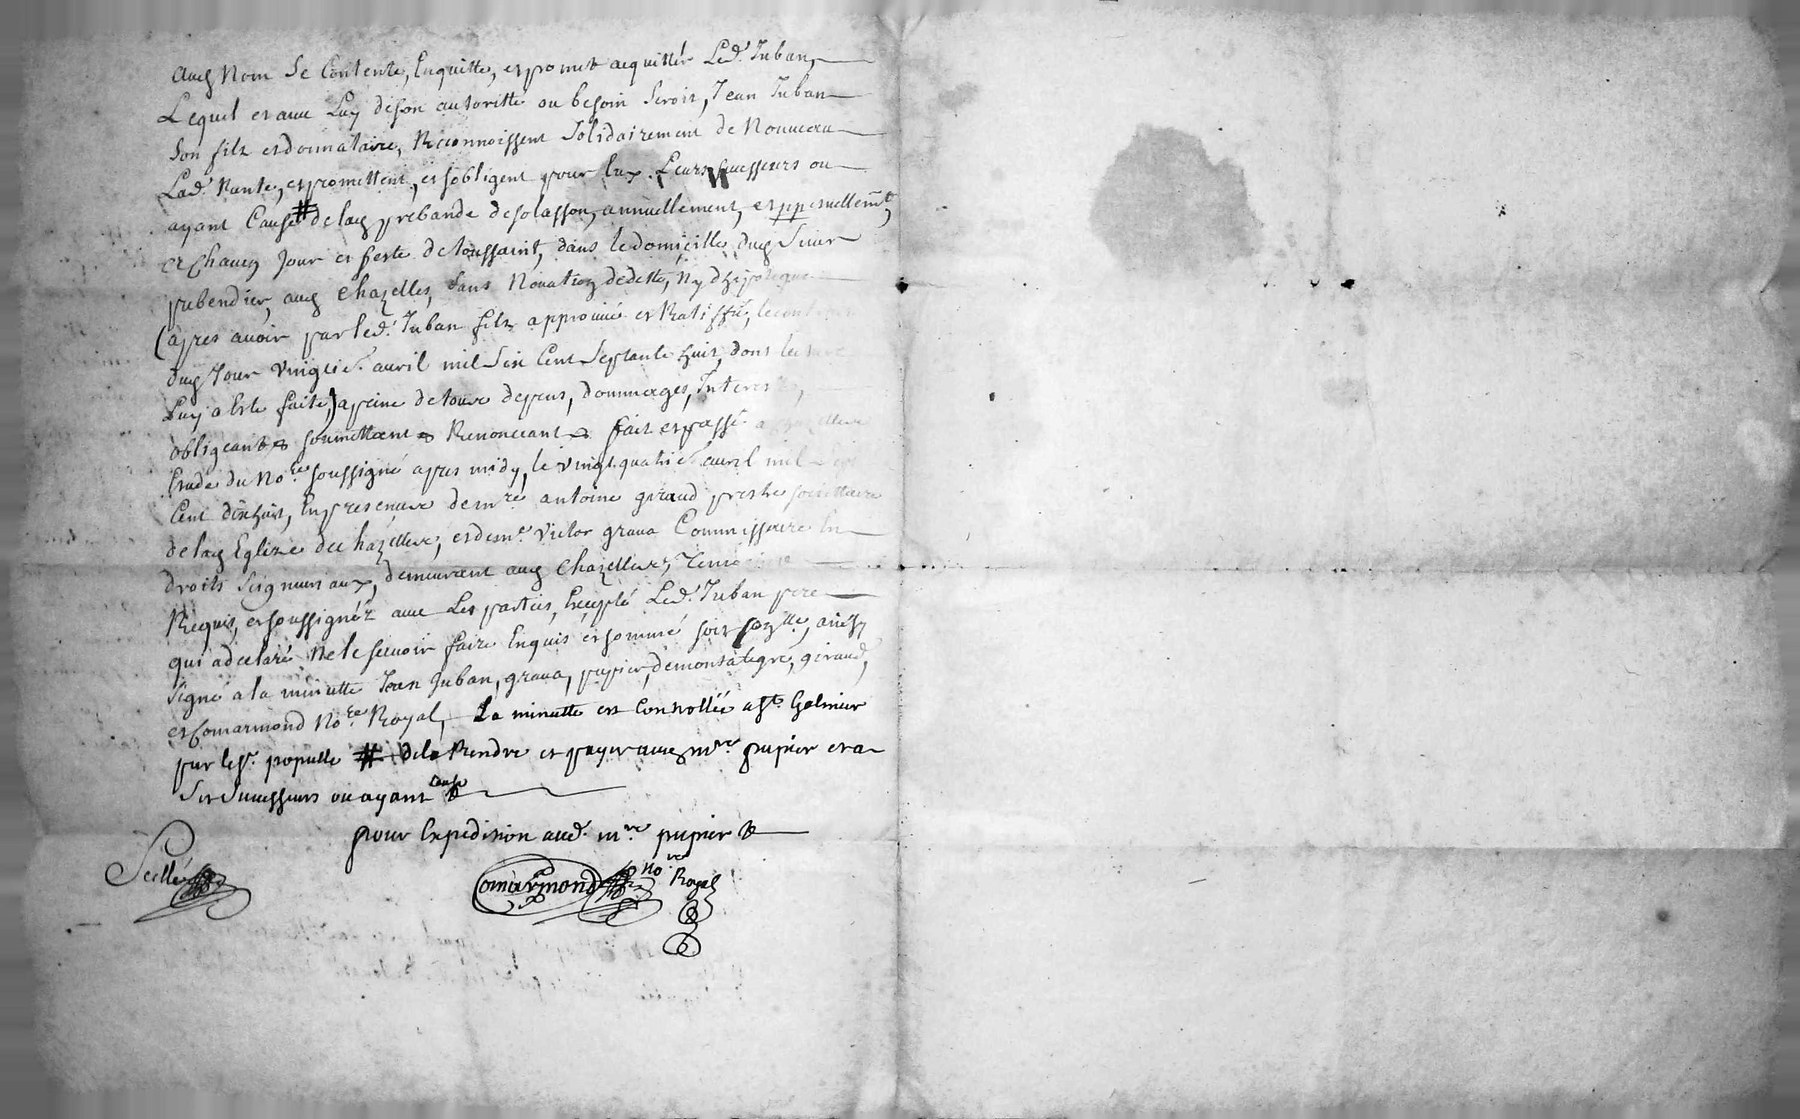 audj Nom Se Contente, Enquitte, et promet acquitter Led. Juban,
Lequel et avec Luy de son autoritte ou besoin Seroit, Jean Juban
Son filz et donnataire, Reconnoissent Solidairement de Nouveau
Lad. Rante, et promettent, et sobligent pour Eux. Leurs successeurs ou
ayant Cause # de lad prebande de solasson, annuellement, et perpetuellemt,
et Chacun Jour et feste de toussaint, dans le domicille dud Sieur
prebendier, aud Chazelles, Sans Novation de dette, Ny dhipoteque
(apres avoir par led. Juban filz approuvé et Ratiffié, le
dud Jour vingtie. avril mil Six Cent Septante huit, dont lecture
Luy a Este faite,) a peine de tous depens, dommages, Interes,
obligeant & soumettant & Renonceant & fait et passé a Chazelles
Etude du Nore. soussigné apres midy, le vingt quatrie. avril mil Sept
Cent dixhuit, En presence de mre antoine giraud prestre societtaire
de lad Eglize de Chazelles, et de me. victor grava Commissaire En
droits Seigneuriaux, demeurant aud Chazelles, Temoins
Requis, et soussignéz avec Les parties, Excepté Led. Juban pere
qui a declaré Ne le scavoir faire Enquis et sommé soit , ainsy
Signé a la minutte Jean Juban, grava, pupier, demontategre, giraud,
et Comarmond Nore Royal, La minutte est Conrollée a St. Galmier
par le Sr. populle # de la Rendre et payer audj mre pupier et a
Ses Successeurs ou ayant Cause &
pour Expedition aud. mre pupier &
Scellé
Comarmond nore Royal